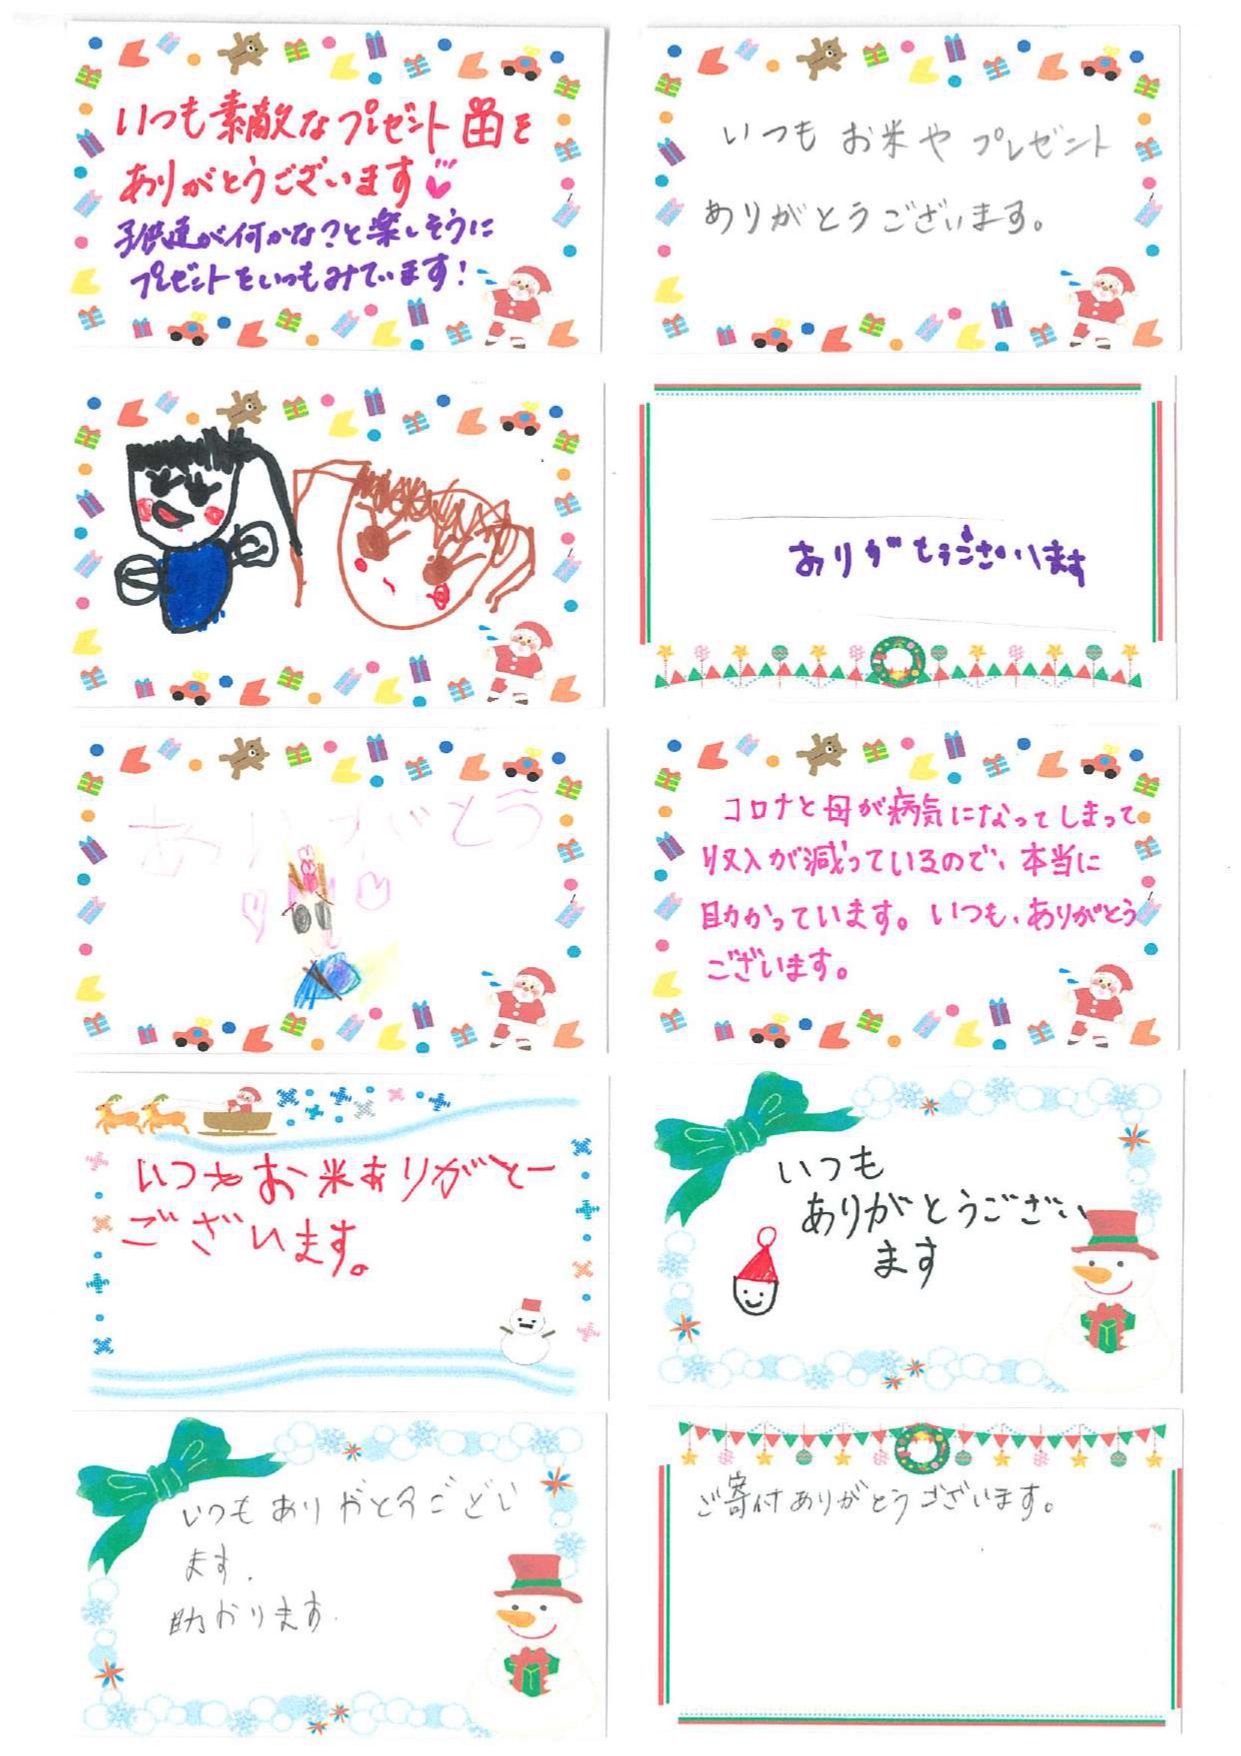 いつも素敵なプレゼントを
ありがとうございます
子供達が何かな?と楽しそうに
プレゼントをいつもみています!
いつもお米やプレゼント
ありがとうございます。
ありがとうございます
ありがとう
コロナと母が病気になってしまって
収入が減っているので、本当に
助かっています。いつも、ありがとう
ございます。
いつもお米ありがとー
ございます。
いつも
ありがとうござい
ます
いつもありがとうござい
ます.
助かります.
ご寄付ありがとうございます。